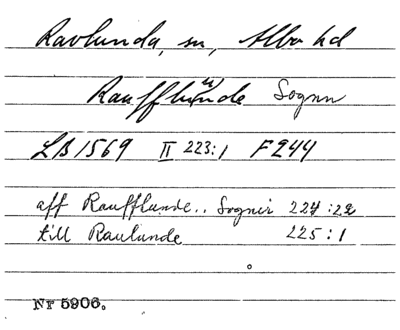 Ravlunda, sn, Albo hd
Raufflunde Sognn
LB 1569 II 223:1 F244
aff Raufflunde.. Sognir 224:22
till Raulunde 225:1
Nr 5906.